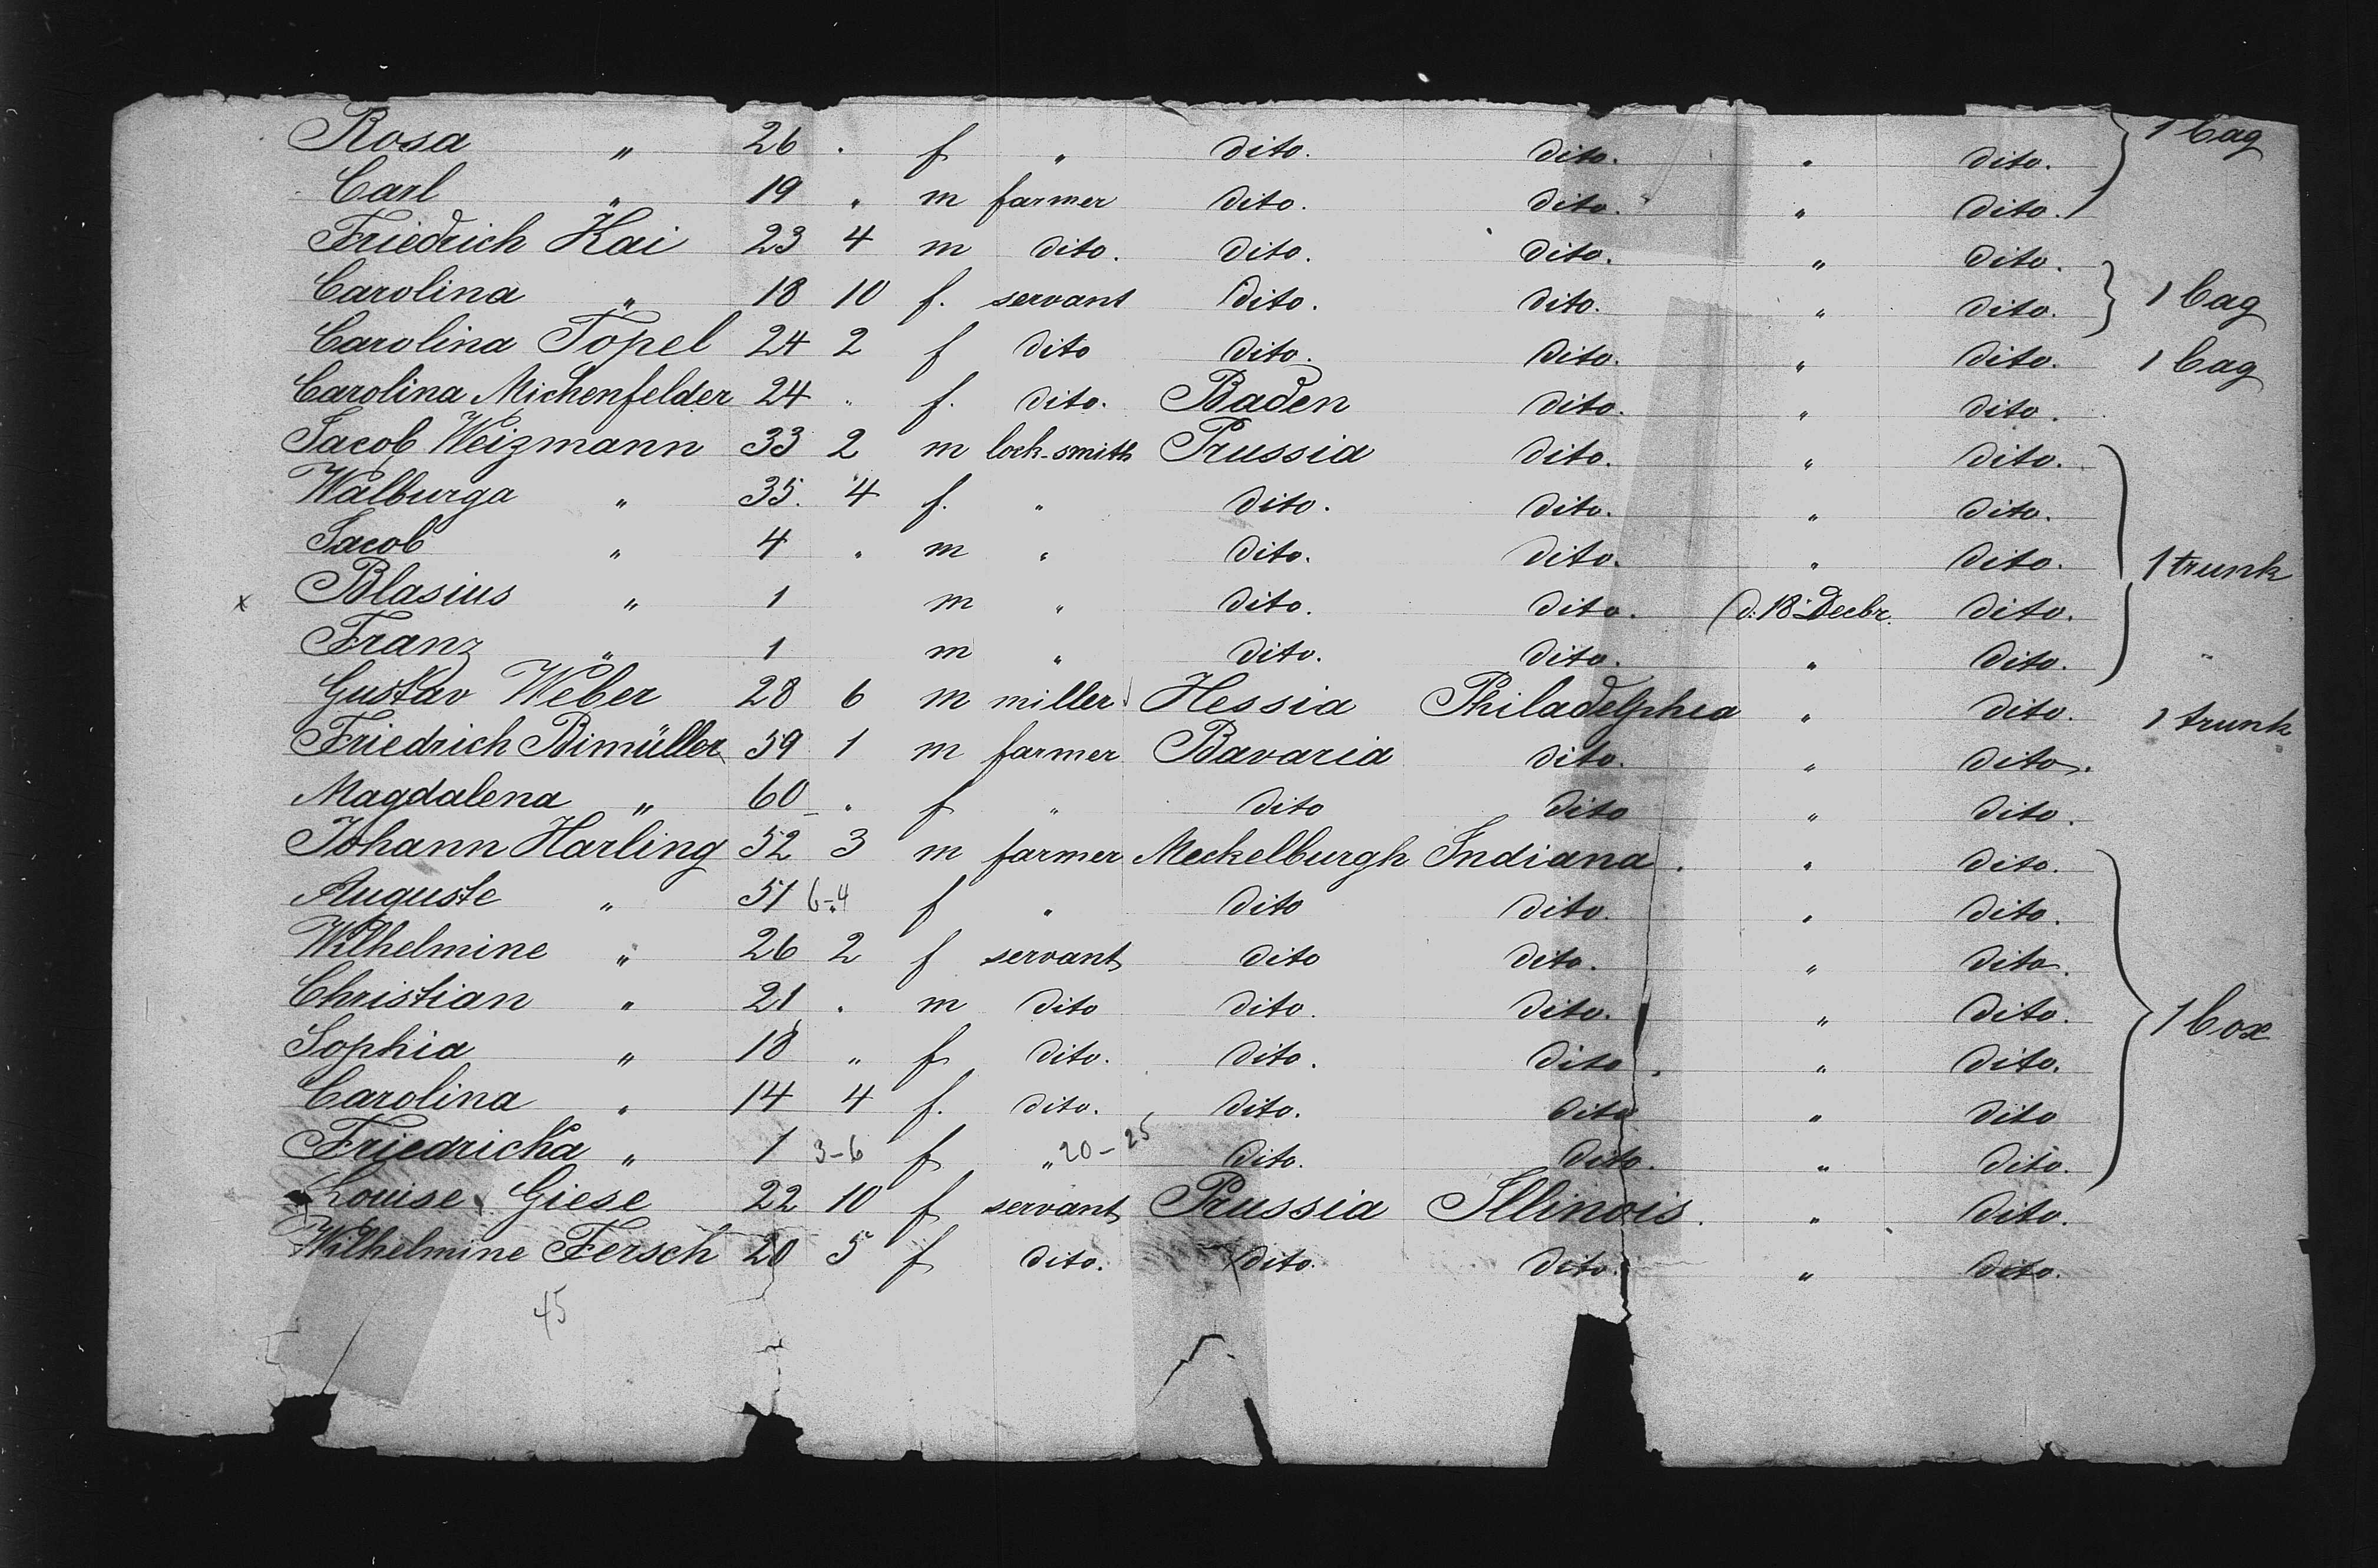 Rosa " 26 . f " dito. dito. " dito. 1 bag
Carl " 19 " m farmer dito. dito. " dito.
Friedrich Kai 23 4 m dito. dito. dito. " dito.
Carolina " 18 10 f. servant dito. dito. " dito. 1 bag
Carolina Topel 24 2 f dito dito. dito. " dito. 1 bag
Carolina Michenfelder 24 " f. dito. Baden dito. " dito.
Jacob Weizmann 33 2 m lock-smith Prussia dito. " dito.
Walburga " 35. 4 f. " dito. dito. " dito.
Jacob " 4 " m " dito. dito. " dito. 1 trunk
x Blasius " 1 m " dito. dito. (d: 18 Decbr. dito.
Franz " 1 m " dito. dito. " dito.
Gustav Weber 28 6 m miller Hessia Philadelphia " dito. 1 trunk
Friedrich Bimüller 59 1 m farmer Bavaria dito. " dito.
Magdalena " 60 " f " dito dito " dito.
Johann Harling 52 3 m farmer Meckelburgh Indiana. " dito.
Auguste " 51 6-4 f " dito dito. " dito.
Wilhelmine " 26 2 f servant dito dito. " dito.
Christian " 21 " m dito dito. dito. " dito. 1 box
Sophia " 18 " f dito. dito. dito. " dito.
Carolina " 14 4 f. dito. dito. dito " dito
Friedricka " 1 3-6 f " 20-25 dito. dito. " dito.
Louise Giese 22 10 f servant Prussia Illinois. " dito.
Wilhelmine Fersch 20 5 f dito. dito. dito. " dito.
45